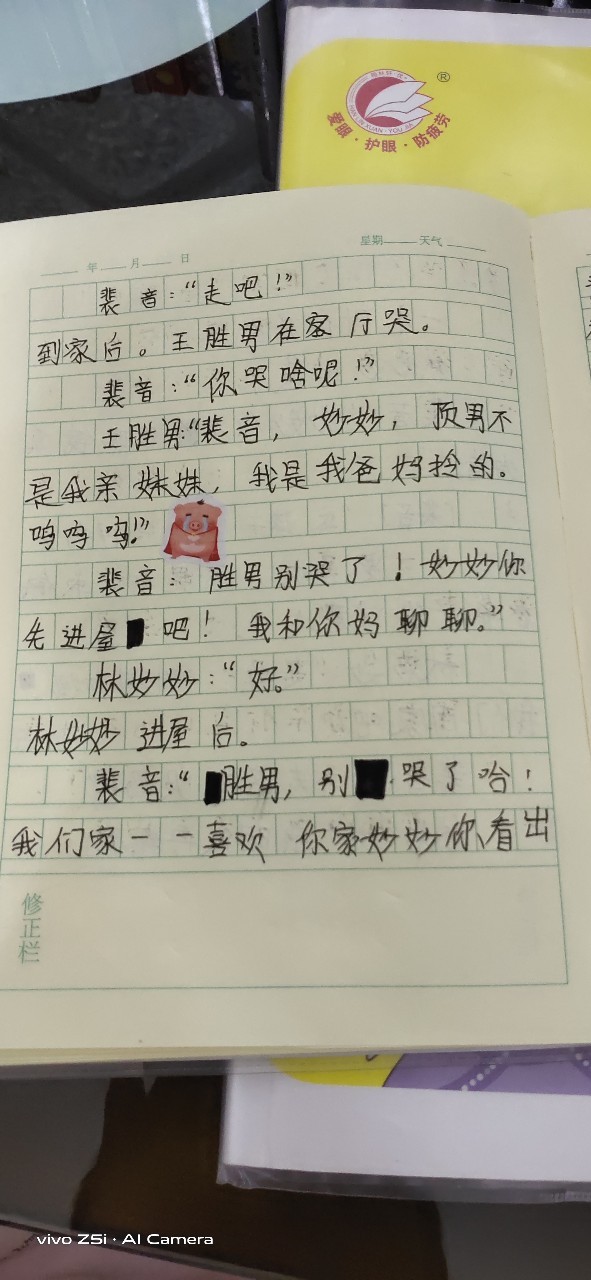 爱眼·护眼·防疲劳
®
年 月 日
星期 天气
裴音：“走吧！”
到家后。王胜男在客厅哭。
裴音：“你哭啥呢！”
王胜男：“裴音，妙妙，顶男不
是我亲妹妹，我是我爸妈捡的。
呜呜呜！”
裴音：胜男别哭了！妙妙你
先进屋吧！我和你妈聊聊。”
林妙妙：“好。”
林妙妙进屋后。
裴音：“胜男，别哭了哈！
我们家一一喜欢你家妙妙你、看出
修正栏
vivo Z5i · AI Camera